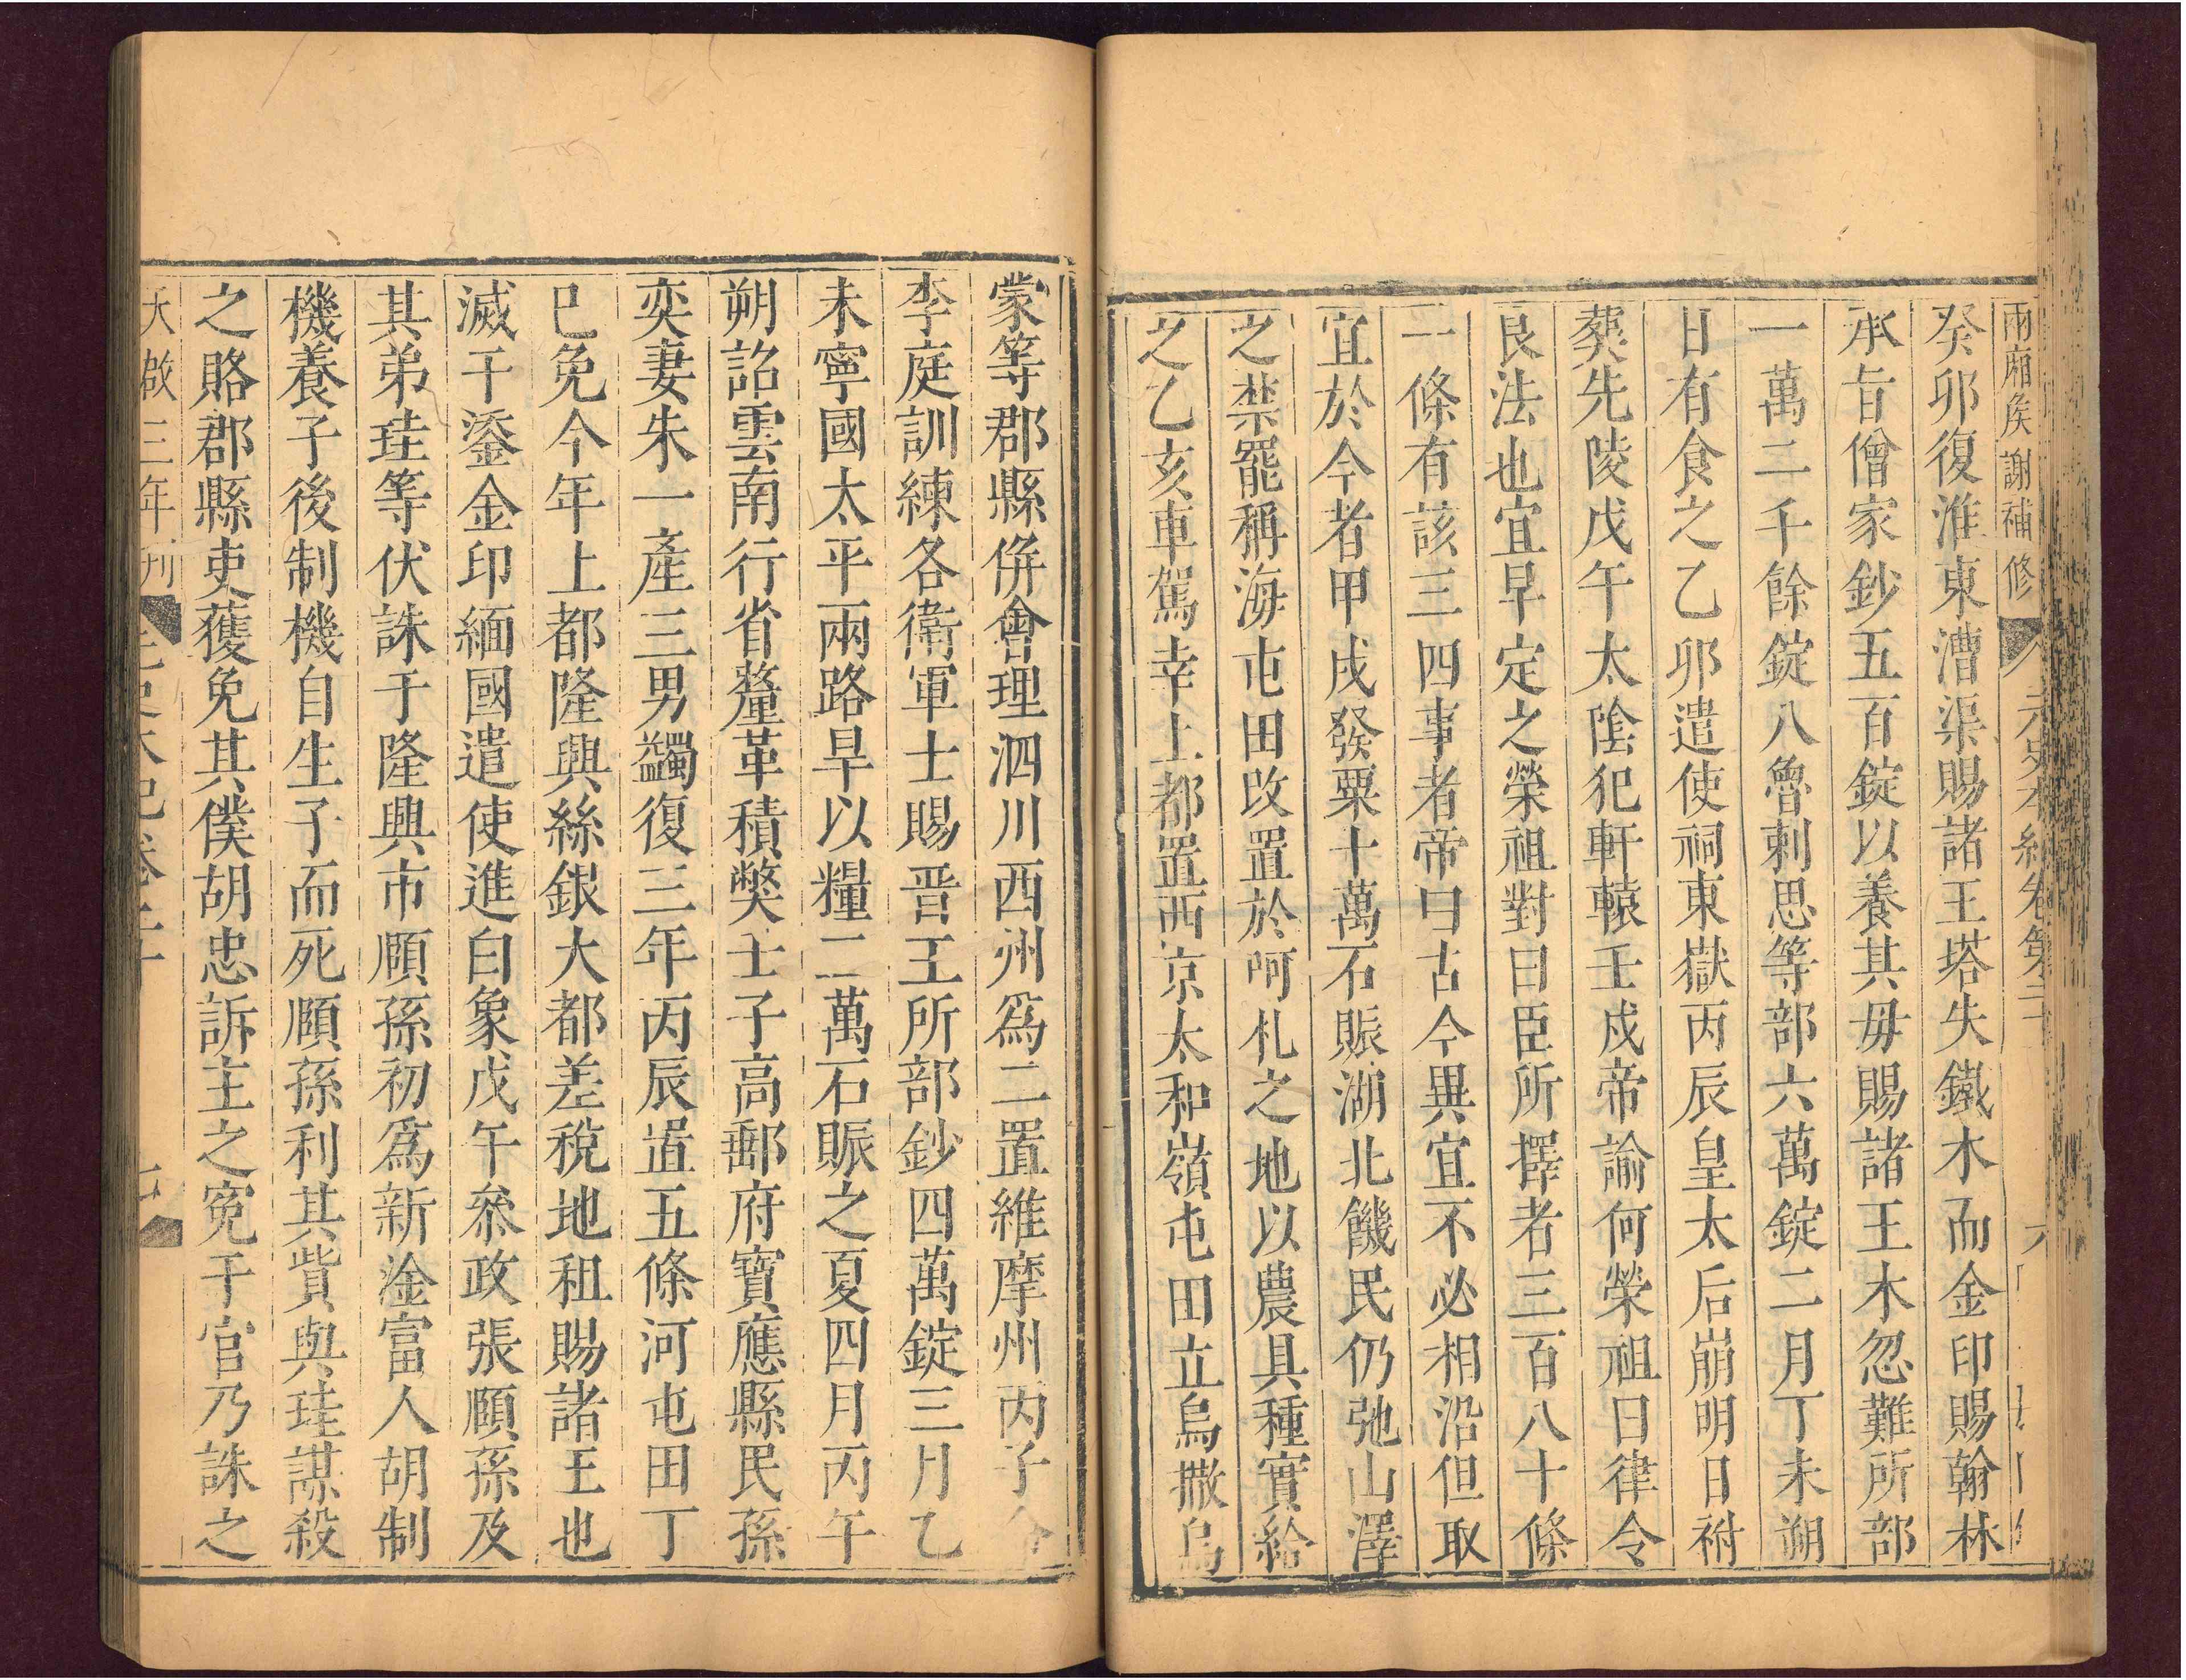 兩廂矦謝補修 元史本紀卷第二十 六
癸卯復淮東漕渠賜諸王塔失鐵木而金印賜翰林
承旨僧家鈔五百錠以養其毋賜諸王木忽難所部
一萬二千餘錠八魯剌思等部六萬錠二月丁未朔
日有食之乙卯遣使祠東嶽丙辰皇太后崩明日祔
葬先陵戊午太陰犯軒轅壬戍帝諭何榮祖曰律令
良法也宜早定之榮祖對曰臣所擇者三百八十條
一條有該三四事者帝曰古今異宜不必相沿但取
宜於今者甲戌發粟十萬石賑湖北饑民仍弛山澤
之禁罷稱海屯田改置於呵札之地以農具種實給
之乙亥車駕幸上都置西京太和嶺屯田立烏撒烏
蒙等郡縣併會理泗川西州爲二置維摩州丙子
李庭訓練各衛軍士賜晋王所部鈔四萬錠三月乙
未寧國太平兩路旱以糧二萬石賑之夏四月丙午
朔詔雲南行省釐革積獘士子高郵府寶應縣民孫
奕妻朱一產三男蠲復三年丙辰置五條河屯田丁
巳免今年上都隆興絲銀大都差稅地租賜諸王也
滅干鋈金印緬國遣使進白象戊午叅政張頤孫及
其弟珪等伏誅于隆興市頤孫初爲新淦富人胡制
機養子後制機自生子而死頤孫利其貲與珪謀殺
之賂郡縣吏獲免其僕胡忠訴主之寃于官乃誅之
天啟三年刊